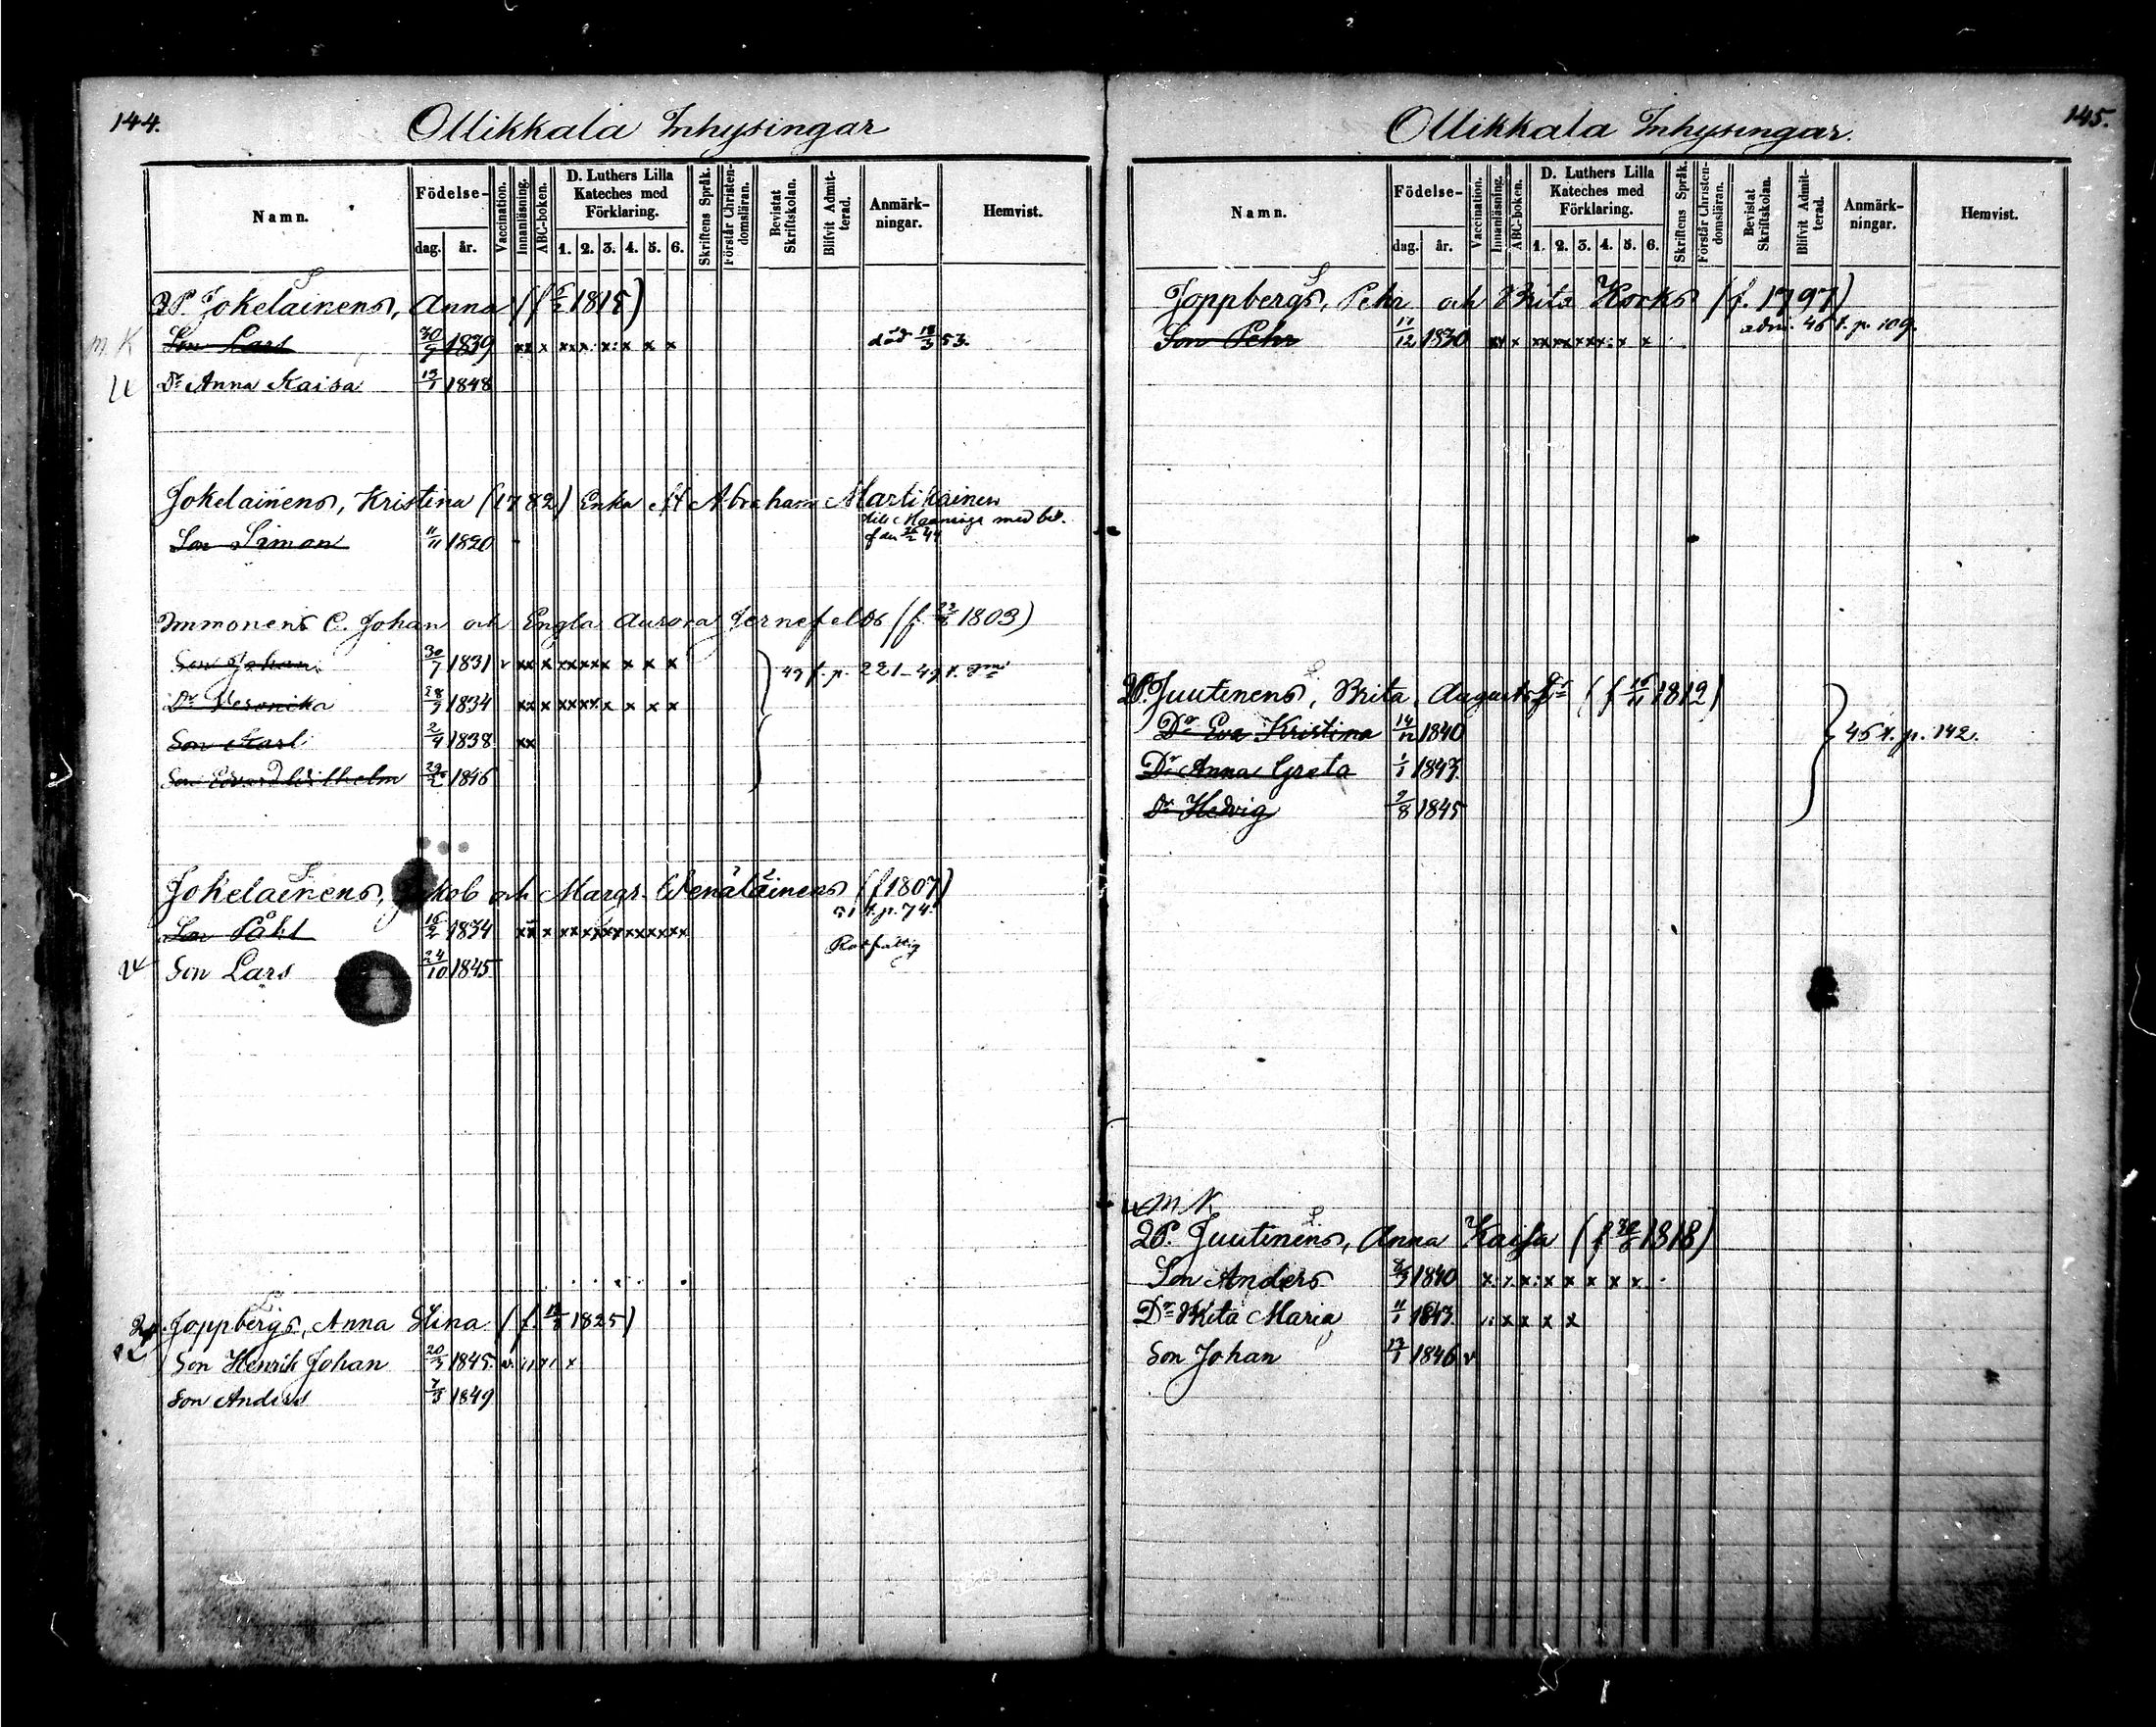 144.
Ollikkala Inhysingar
Namn. Födelse- dag. år. Vaccination. Innanläsning. ABC-boken. D. Luthers Lilla Kateches med Förklaring. 1. 2. 3. 4. 5. 6. Skriftens Språk. Förstår Christendomsläran. Bevistat Skriftskolan. Blifvit Admitterad. Anmärkningar. Hemvist.
Jokelainens, Anna (f 1815)
m K Son Lars 30/9 1839 xx x xx x. x. x x x död 18/3 53.
Dr Anna Kaisa 13/1 1848
Jokelainens, Kristina (1782) Enka Abraham Martikainen
Son Simon 11/11 1820 till Maaninga med bet.
Immonens C. Johan och Engla Aurora Jernefelds (f. 1803)
Son Johan 30/7 1831 v xx x xxxxx x x x 49 f. p. 221
Dr Veronika 28/9 1834 xx x xxxx x x x x
Son Karl 2/4 1838 xx
Son Edvard Wilhelm 1846
Jokelainens, Jakob och Margr. Wenäläinens (f 1807)
Son Påhl 1834 51 f. p. 74.
Son Lars 24/10 1845
Joppbergs, Anna Stina (f. 1825)
Son Henrik Johan 20/3 1845
Son Anders 7/3 1849
145.
Ollikkala Inhysingar.
Namn. Födelse- dag. år. Vaccination. Innanläsning. ABC-boken. D. Luthers Lilla Kateches med Förklaring. 1. 2. 3. 4. 5. 6. Skriftens Språk. Förstår Christendomsläran. Bevistat Skriftskolan. Blifvit Admitterad. Anmärkningar. Hemvist.
Joppbergs, Pehr och Brita Korks (f. 1797)
Son Pehr 11/12 1830 adm. 46 f. p. 109.
Juutinens, Brita, Augusts Dr (f 15/11 1812)
Dr Eva Kristina 14/12 1840 46 f. p. 142.
Dr Anna Greta 1/1 1843
Dr Hedvig 9/8 1845
M N
Juutinens, Anna Kaisa (f 1818)
Son Anders 1840
Dr Brita Maria 11/1 1843
Son Johan 1846 v